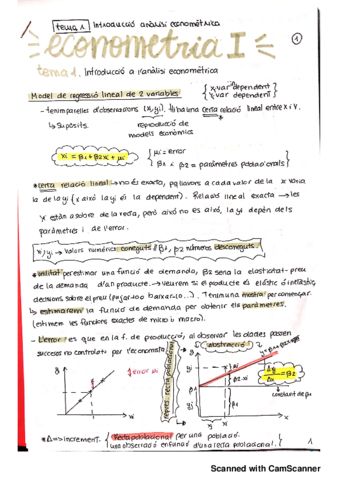 tema 1 Introducció anàlisi econométrica
1
econometria I
tema 1. Introducció a l'anàlisi econométrica
Model de regressió lineal de 2 variables
- tenim parelles d'observacions (xi, yi). Hi ha una certa relació lineal entre x i Y.
↳ Suposits.
reproducció de
models econòmics
μi = error
β1 i β2 = paràmetres poblacionals
certa relació lineal → no és exacta, pq llavors a cada valor de la x varia
els paràmetres i de l'error.
xi, yi → valors numèrics coneguts i β1, β2 números desconeguts.
utilitat per estimar una funció de demanda, β2 sería la elasticitat-preu
de la demanda d'un producte. → veurem si el producte és elàstic o inelàstic,
decisions sobre el preu (pujar-lo o baixar-lo...). Tenim una mostra per començar.
↳ estimarem la funció de demanda per obtenir els paràmetres.
(estimem les funcions exactes de micro i macro).
L'error: es que en la f. de producció, al observar les dades passen
successos no controlats per l'economista
(abstracció)
error xi
Δy/Δx = β2
constant de β2
Δ => increment. Recta poblacional per una població.
una observació en funció d'una recta poblacional.
1
Scanned with CamScanner